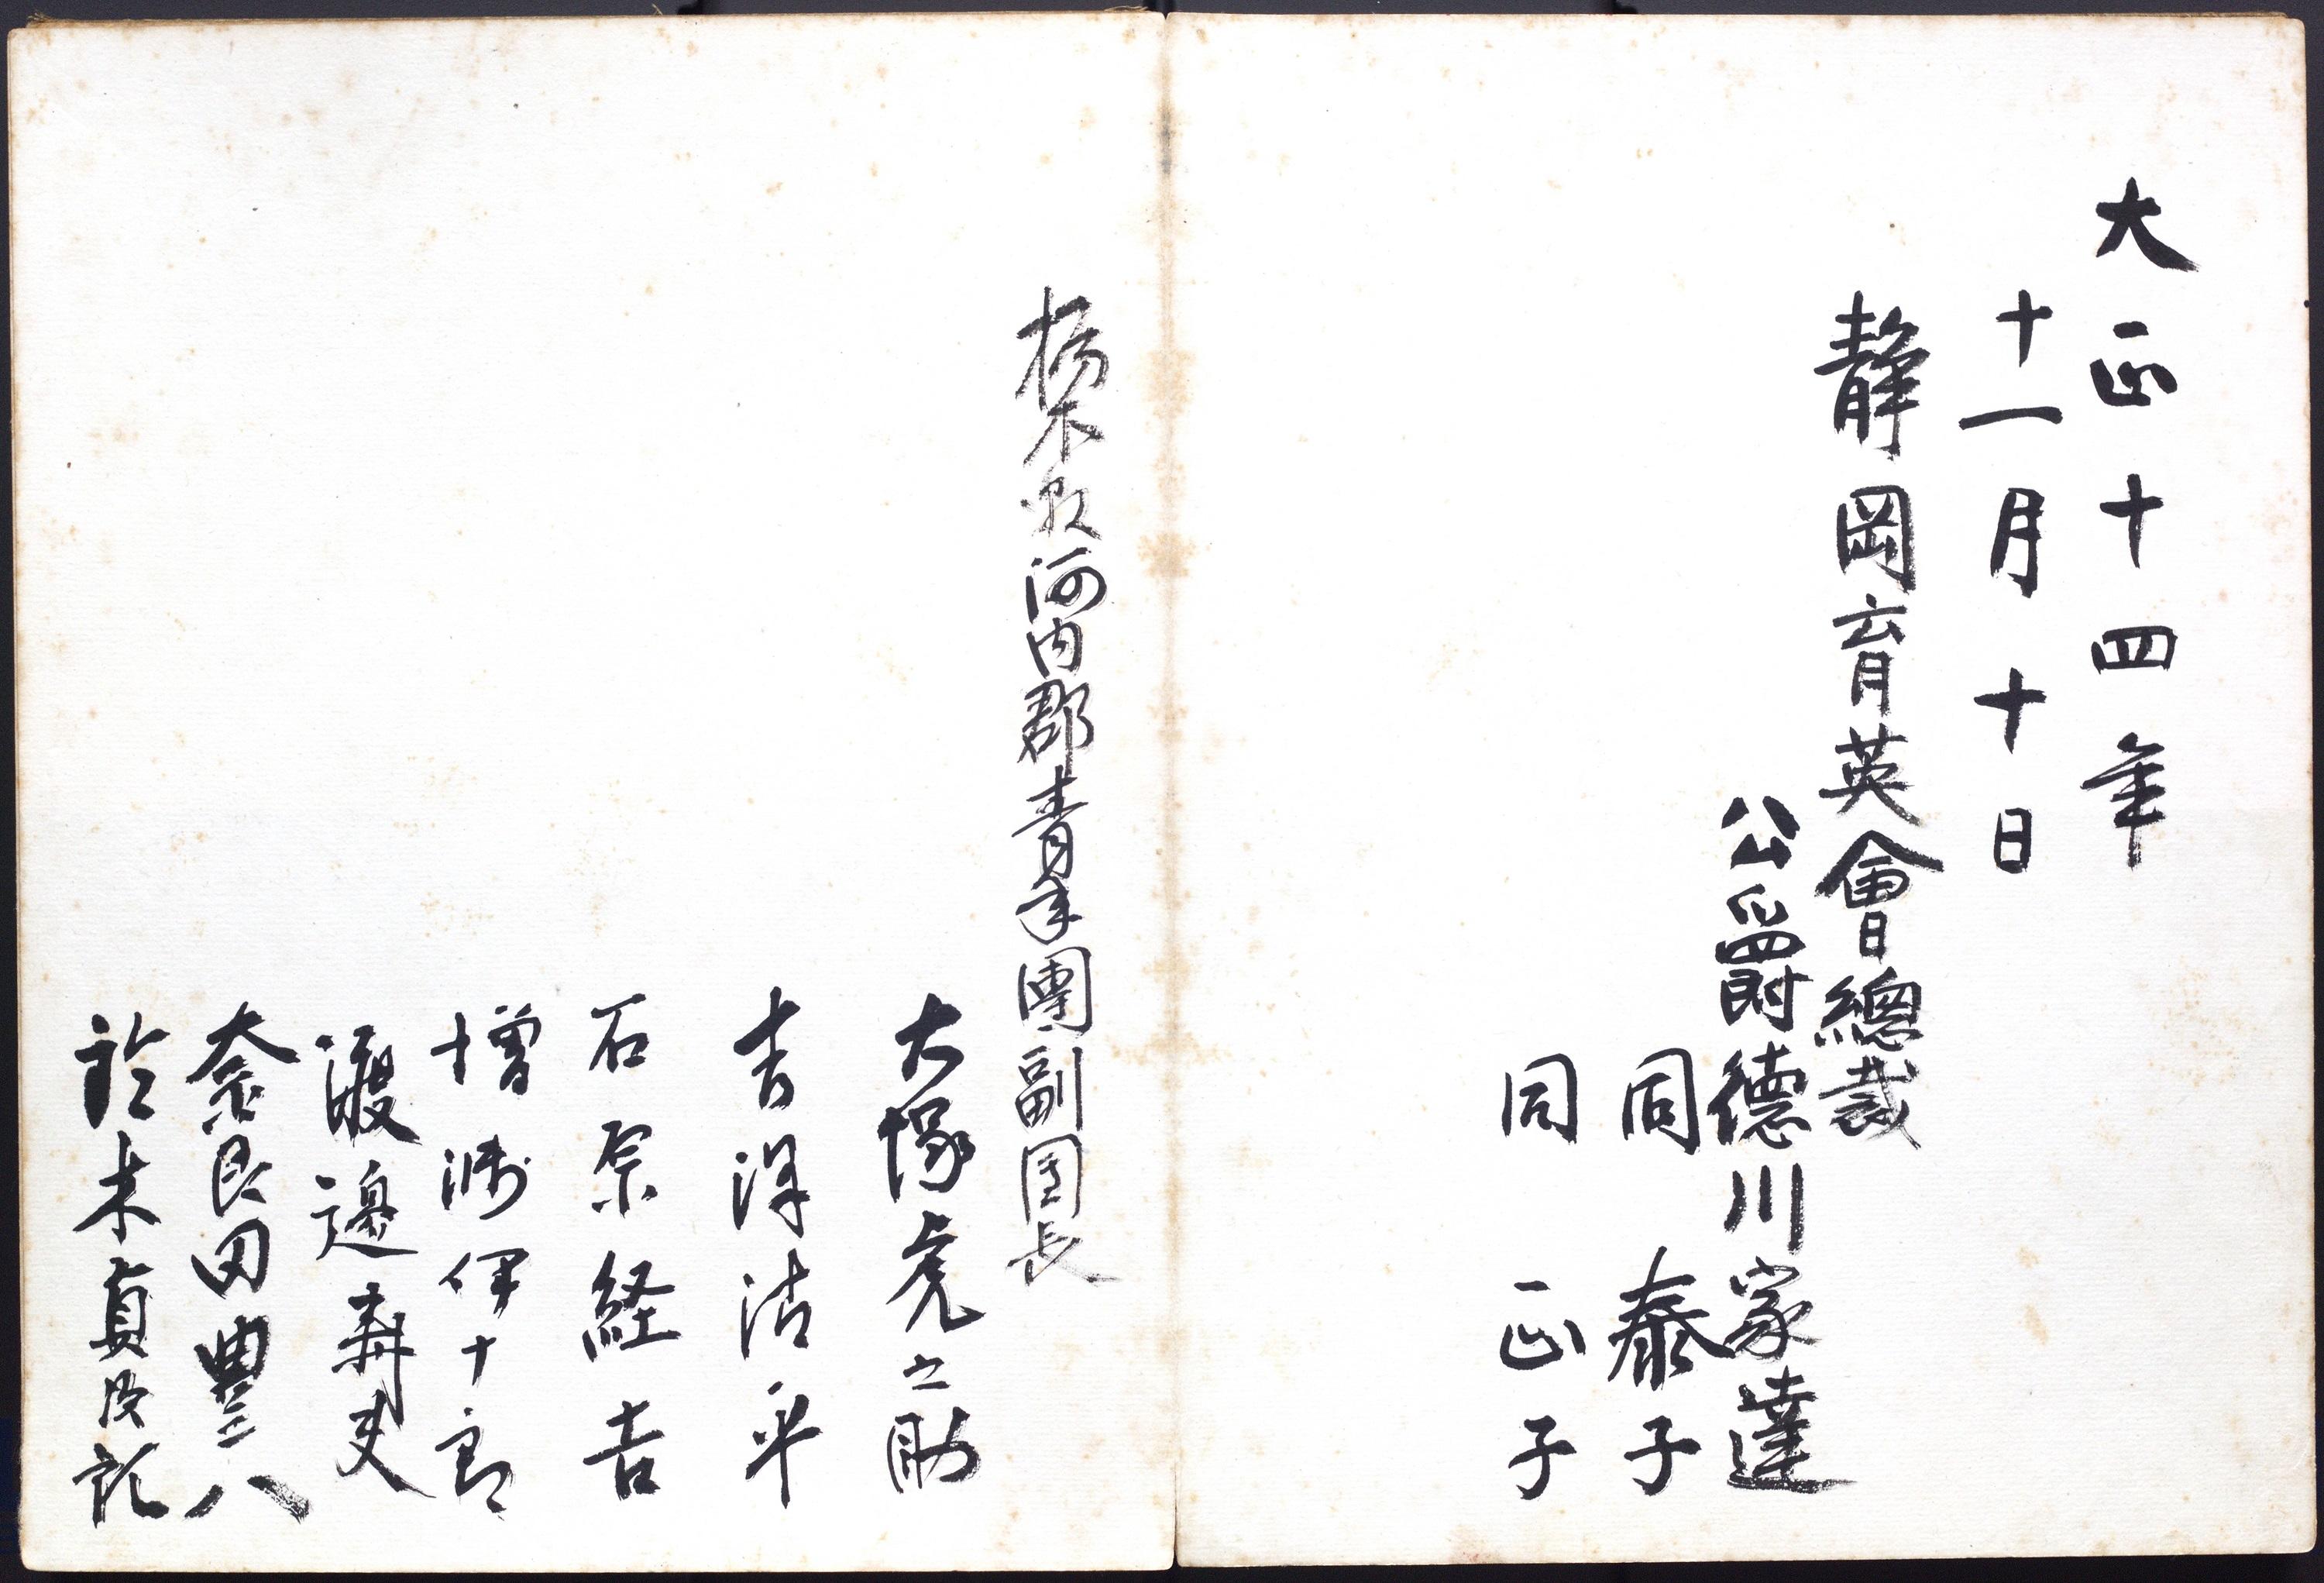 大正十四年
十一月十日
静岡育英會總裁
公爵德川家達
同 泰子
同 正子
栃木縣河内郡青年團副團長
大塚虎之助
吉澤沽平
石原経吉
増渕伊十郎
渡邉壽夫
奈良田豊八
鈴木貞